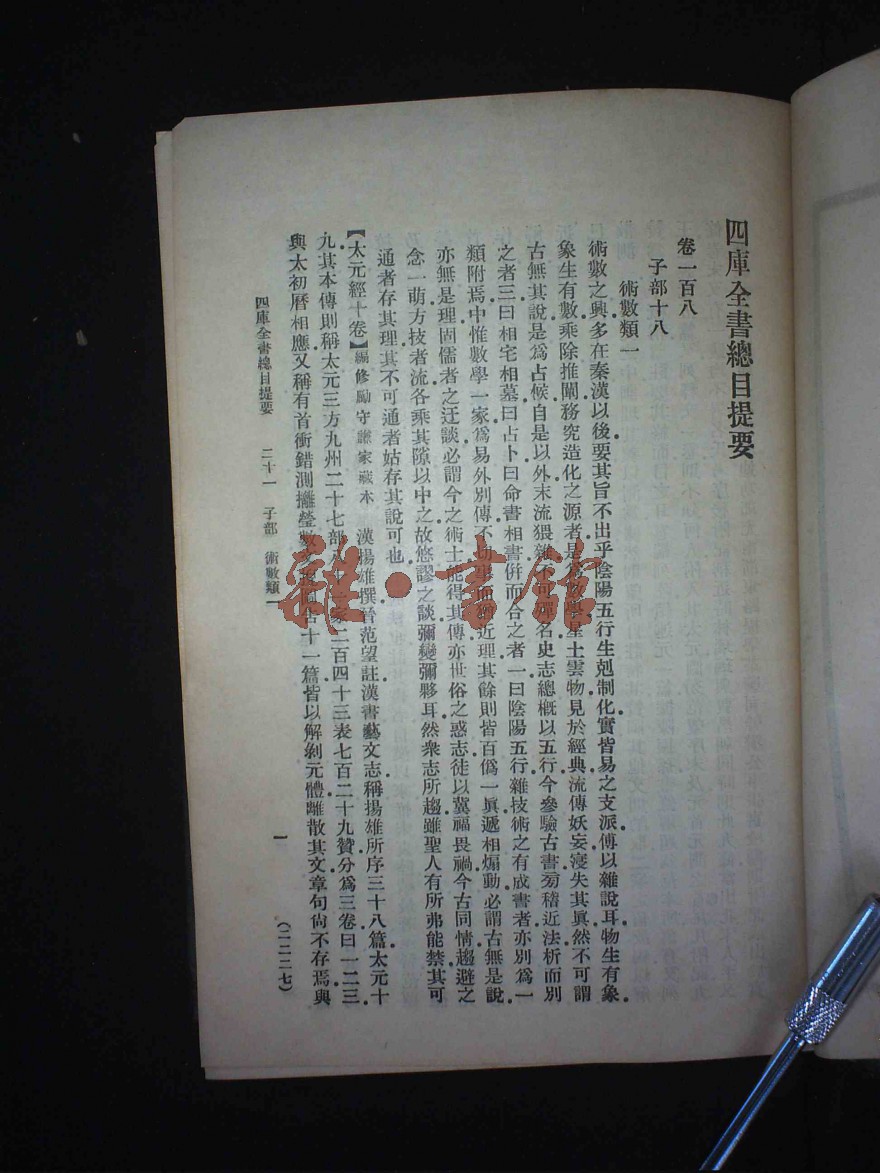 四庫全書總目提要
卷一百八
子部十八
術數類一
術數之興多在秦漢以後要其旨不出乎陰陽五行生剋制化實皆易之支派傅以雜說耳物生有象
象生有數乘除推闡務究造化之源者是爲數學星土雲物見於經典流傳妖妄寖失其眞然不可謂
古無其說是爲占候自是以外末流猥雜不可殫名史志總槪以五行今參驗古書旁稽近法析而別
之者三曰相宅相墓曰占卜曰命書相書併而合之者一曰陰陽五行雜技術之有成書者亦別爲一
類附焉中惟數學一家爲易外別傳不切事而猶近理其餘則皆百僞一眞遞相煽動必謂古無是說
亦無是理固儒者之迂談必謂今之術士能得其傳亦世俗之惑志徒以冀福畏禍今古同情趨避之
念一萌方技者流各乘其隙以中之故悠謬之談彌變彌夥耳然衆志所趨雖聖人有所弗能禁其可
通者存其理其不可通者姑存其說可也
【太元經十卷】編修勵守謙家藏本 漢揚雄撰晉范望註漢書藝文志稱揚雄所序三十八篇太元十
九其本傳則稱太元三方九州二十七部八十一家二百四十三表七百二十九贊分爲三卷曰一二三
與太初曆相應又稱有首衝錯測攡瑩數文 十一篇皆以解剝元體離散其文章句尙不存焉與
四庫全書總目提要 二十一 子部 術數類一 一 (二二二七)
雜·書館